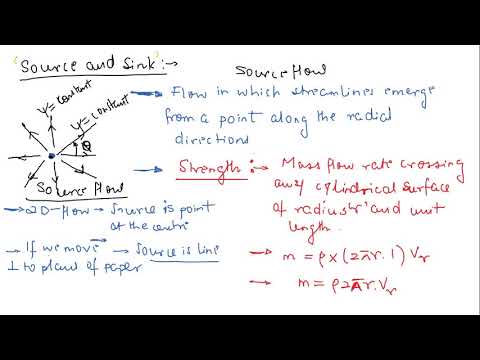 "Source and Sink":-
Ψ=constant
Ψ=constant
θ
Source Flow
→ 2D-flow → Source is point
at the centre
→ If we move → Source is line
⊥ to plane of paper
Source flow
→ Flow in which streamlines emerge
from a point along the radial
directions
→ Strength:- Mass flow rate crossing
any cylindrical surface
of radius 'r' and unit
length.
→ m = ρ×(2πr.1)Vr
→ m = ρ2πr.Vr